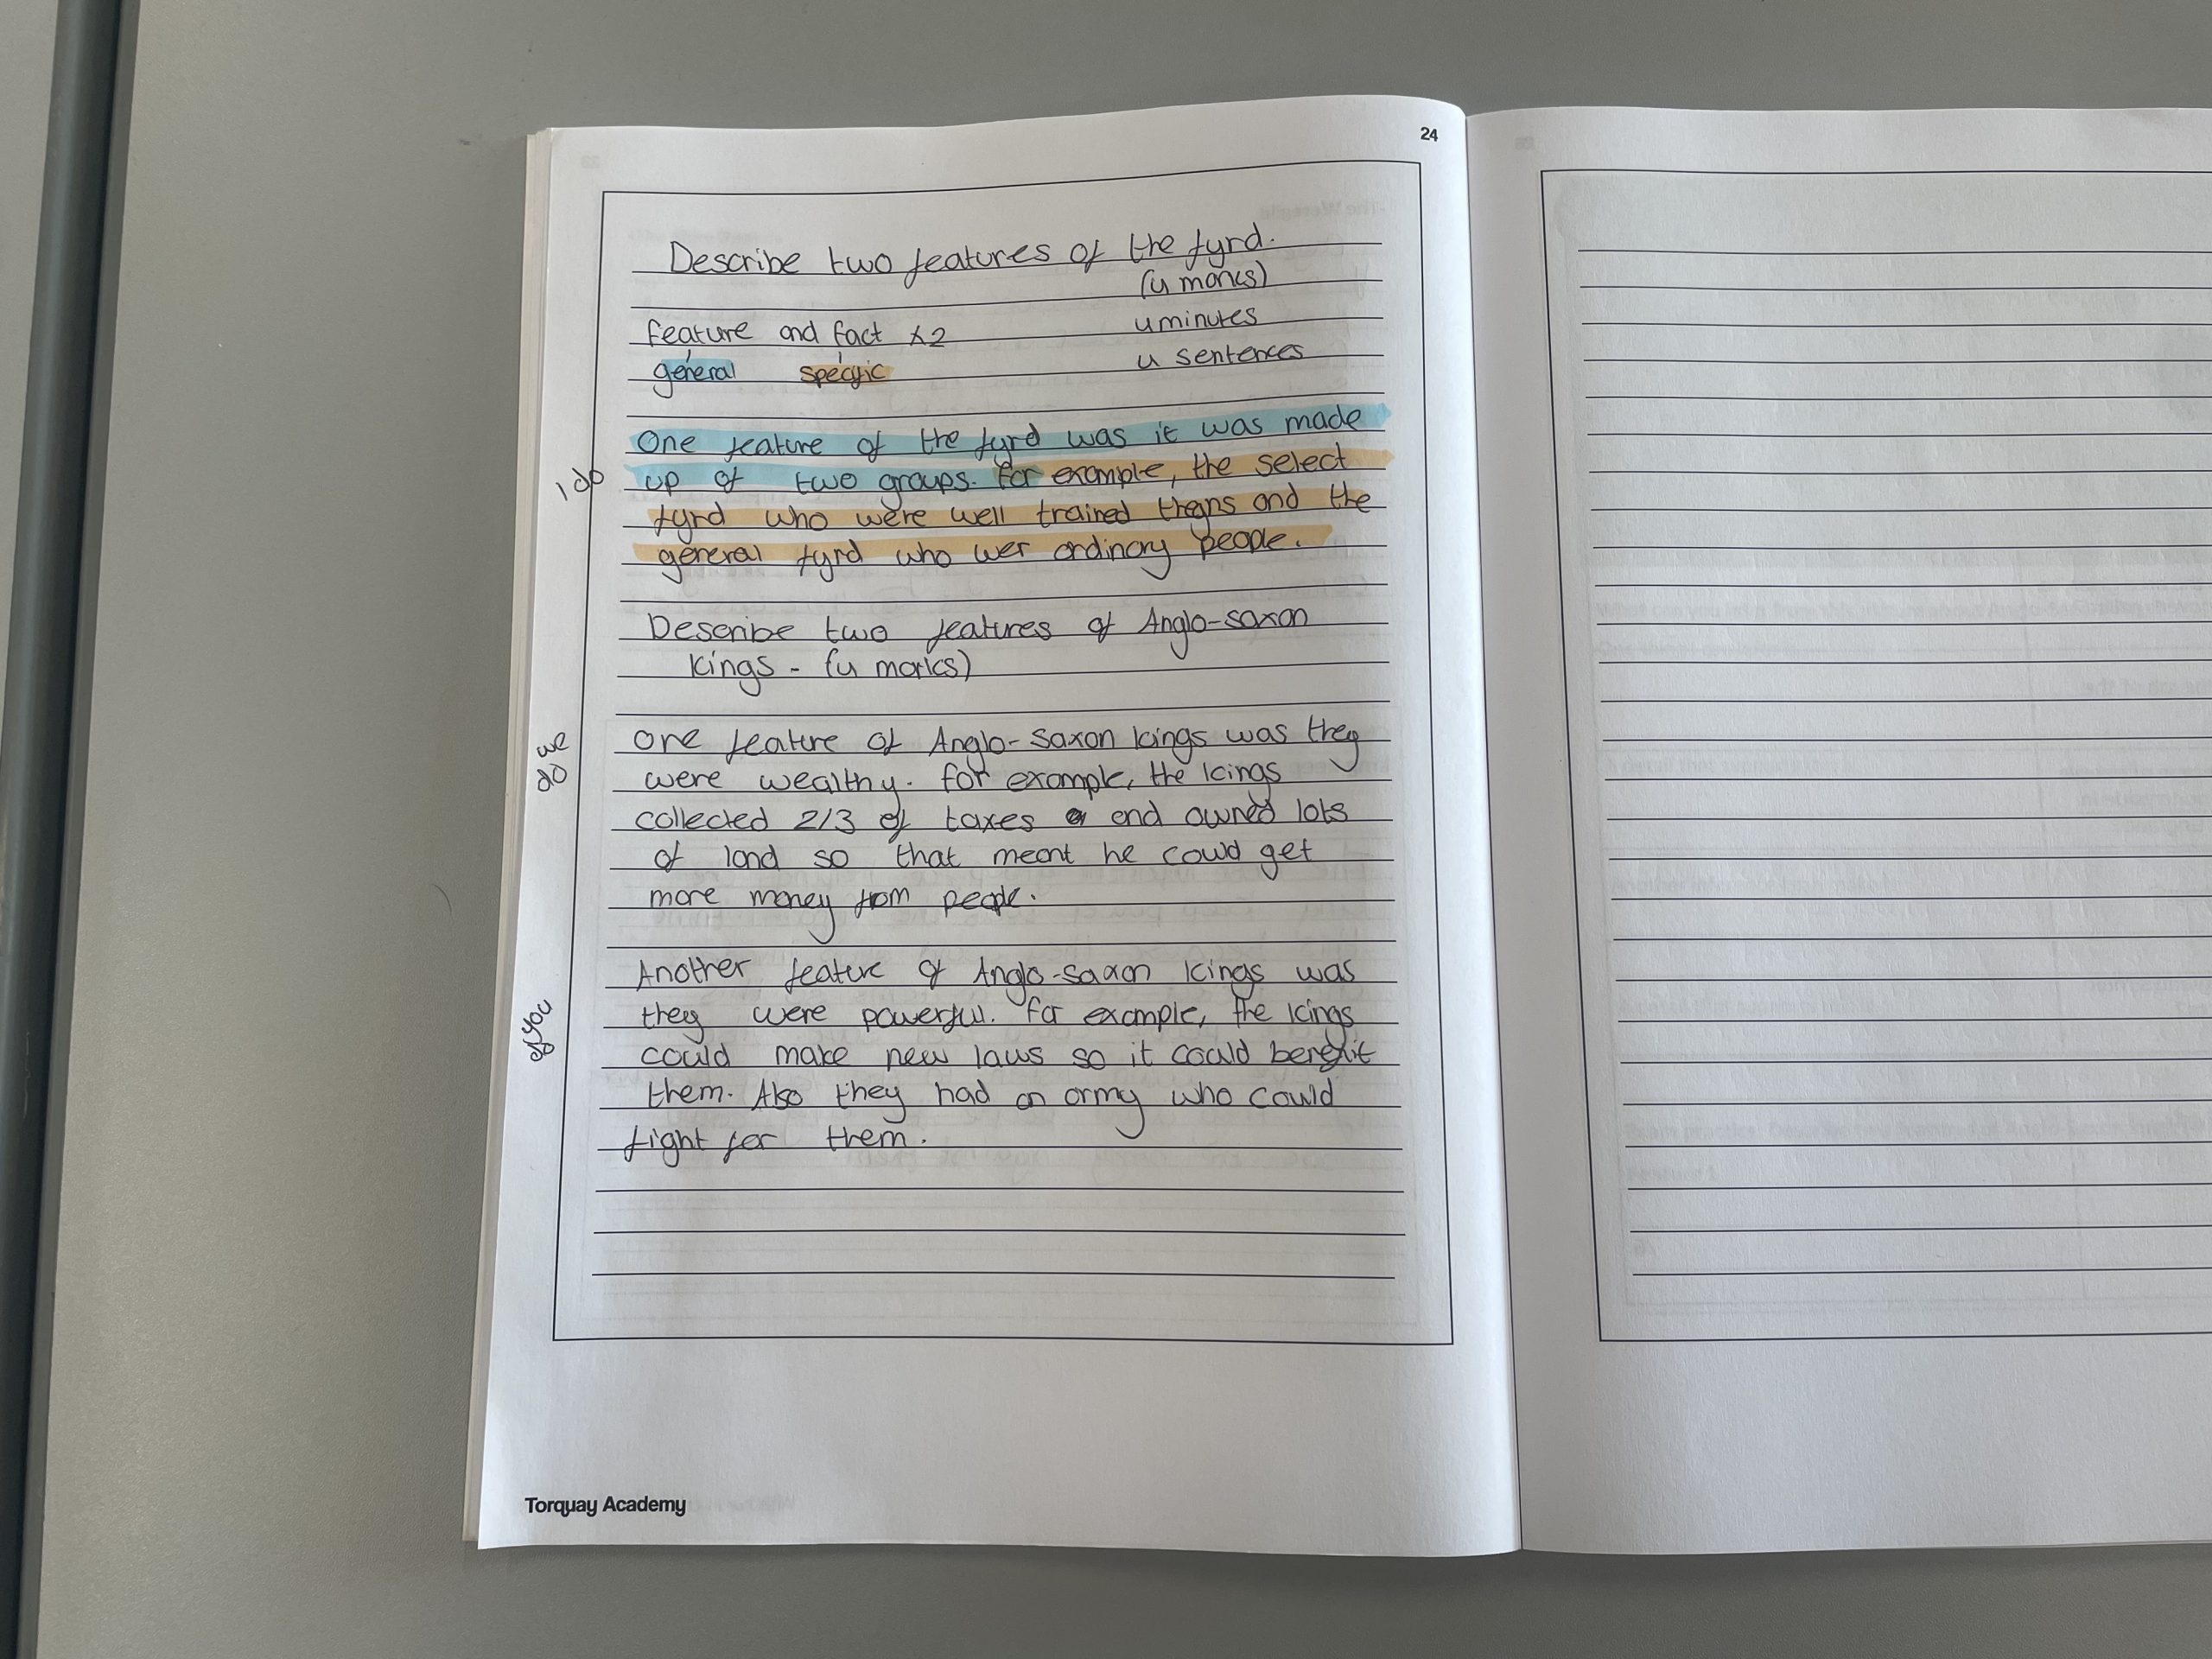 24
Describe two features of the fyrd.
(4 marks)
feature and fact x2
4 minutes
general specific
4 sentences
One feature of the fyrd was it was made
I do
up of two groups. For example, the select
fyrd who were well trained thegns and the
general fyrd who wer ordinary people.
Describe two features of Anglo-saxon
kings - (4 marks)
we do
One feature of Anglo-Saxon kings was they
were wealthy. For example, the kings
collected 2/3 of taxes and owned lots
of land so that meant he could get
more money from people.
Another feature of Anglo-saxon kings was
you do
they were powerful. For example, the kings
could make new laws so it could benefit
them. Also they had an army who could
fight for them.
Torquay Academy